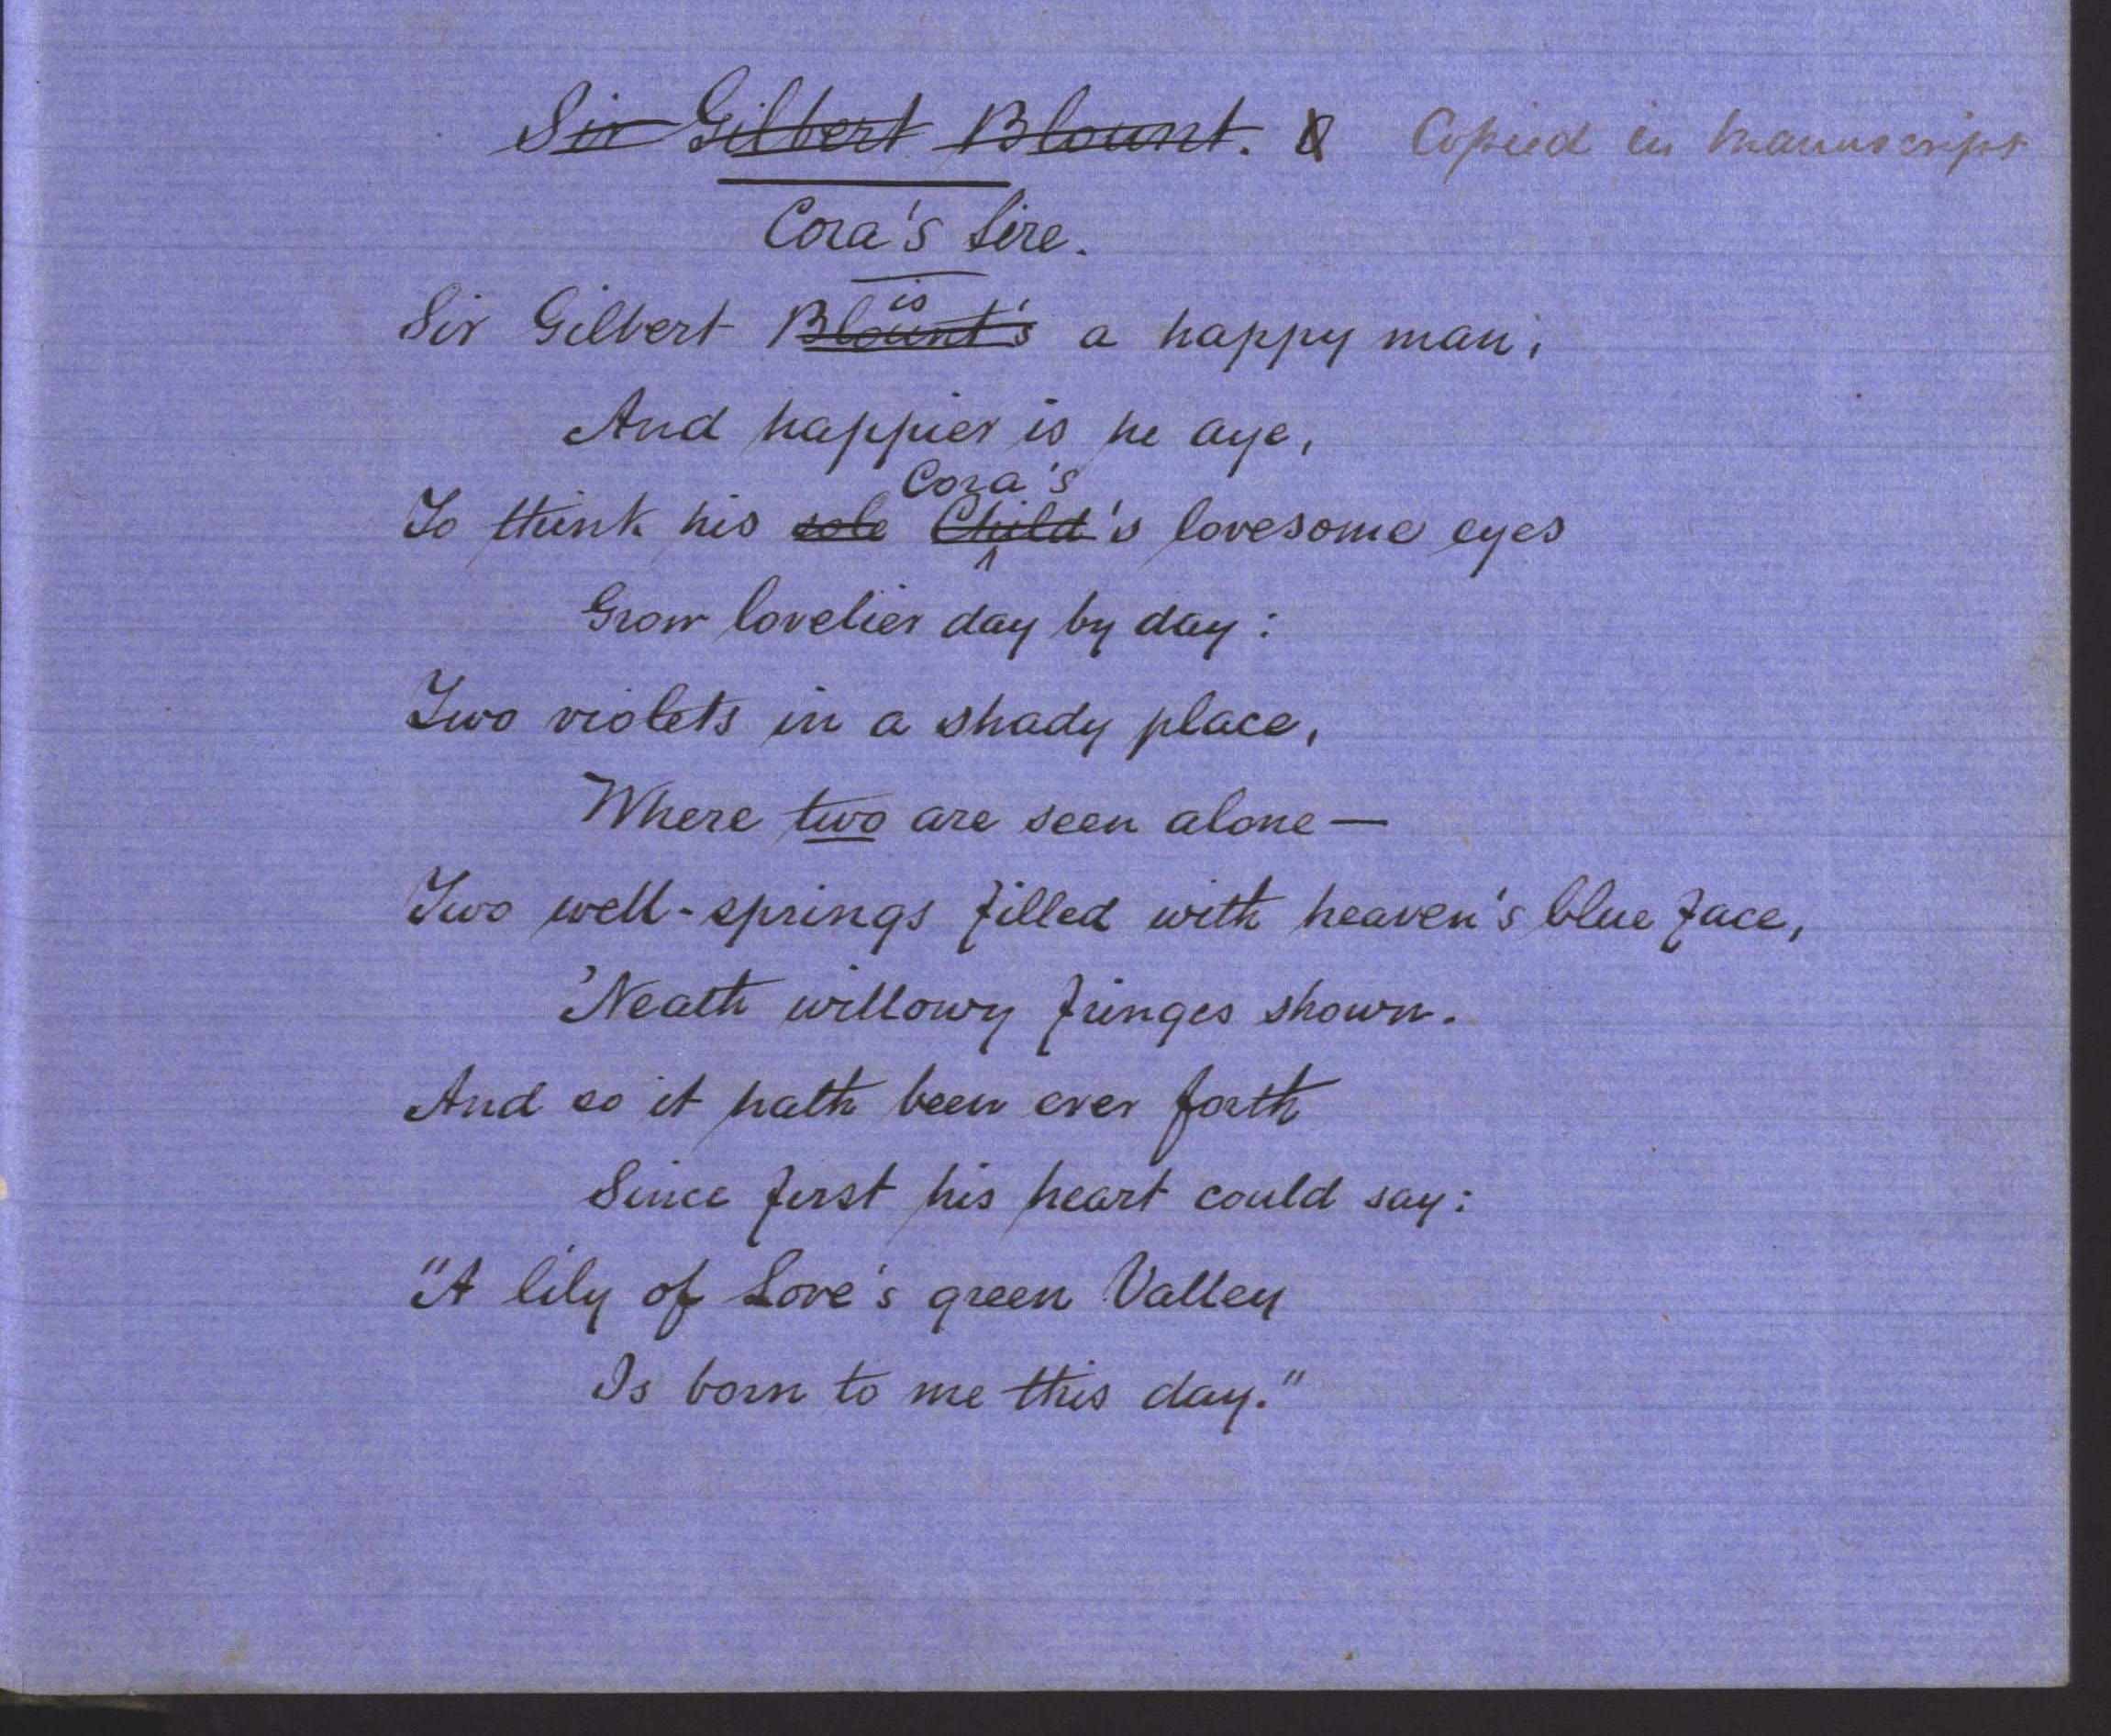 Sir Gilbert Blount. Copied in Manuscript
Cora's Sire.
is
Sir Gilbert Blount's a happy man,
And happier is he aye,
Cora's
To think his sole Child's lovesome eyes
Grow lovelier day by day:
Two violets in a shady place,
Where two are seen alone—
Two well-springs filled with heaven's blue face,
'Neath willowy fringes shown.
And so it hath been ever forth
Since first his heart could say:
"A lily of Love's green Valley
Is born to me this day."